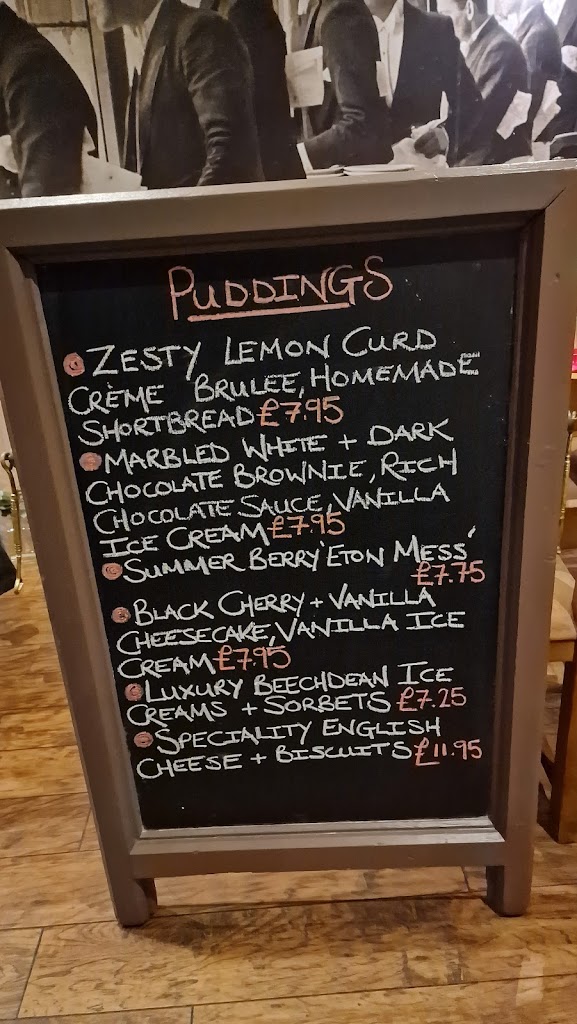 PUDDINGS
ZESTY LEMON CURD
CRÈME BRULEE, HOMEMADE
SHORTBREAD £7.95
MARBLED WHITE + DARK
CHOCOLATE BROWNIE, RICH
CHOCOLATE SAUCE, VANILLA
ICE CREAM £7.95
SUMMER BERRY 'ETON MESS'
£7.75
BLACK CHERRY + VANILLA
CHEESECAKE, VANILLA ICE
CREAM £7.95
LUXURY BEECHDEAN ICE
CREAMS + SORBETS £7.25
SPECIALITY ENGLISH
CHEESE + BISCUITS £11.95